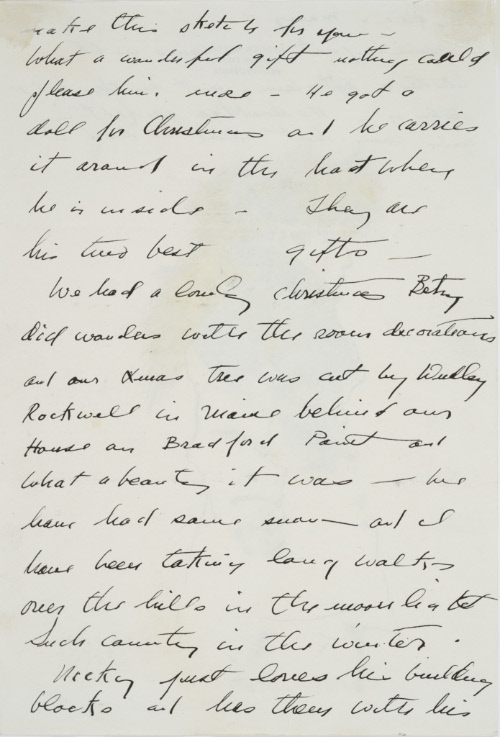 make this sketch for you —
What a wonderful gift nothing could
please him more — He got a
doll for Christmas and he carries
it around in the boat when
he is inside — They are
his two best gifts —
We had a lovely Christmas Betsy
did wonders with the room decorations
and our Xmas tree was cut by
Rockwell in Maine behind our
House on Bradford Point and
What a beauty it was — we
have had some snow and I
have been taking long walks
over the hills in the moonlight
Such country in the winter.
Nicky just loves his building
blocks and has them with his